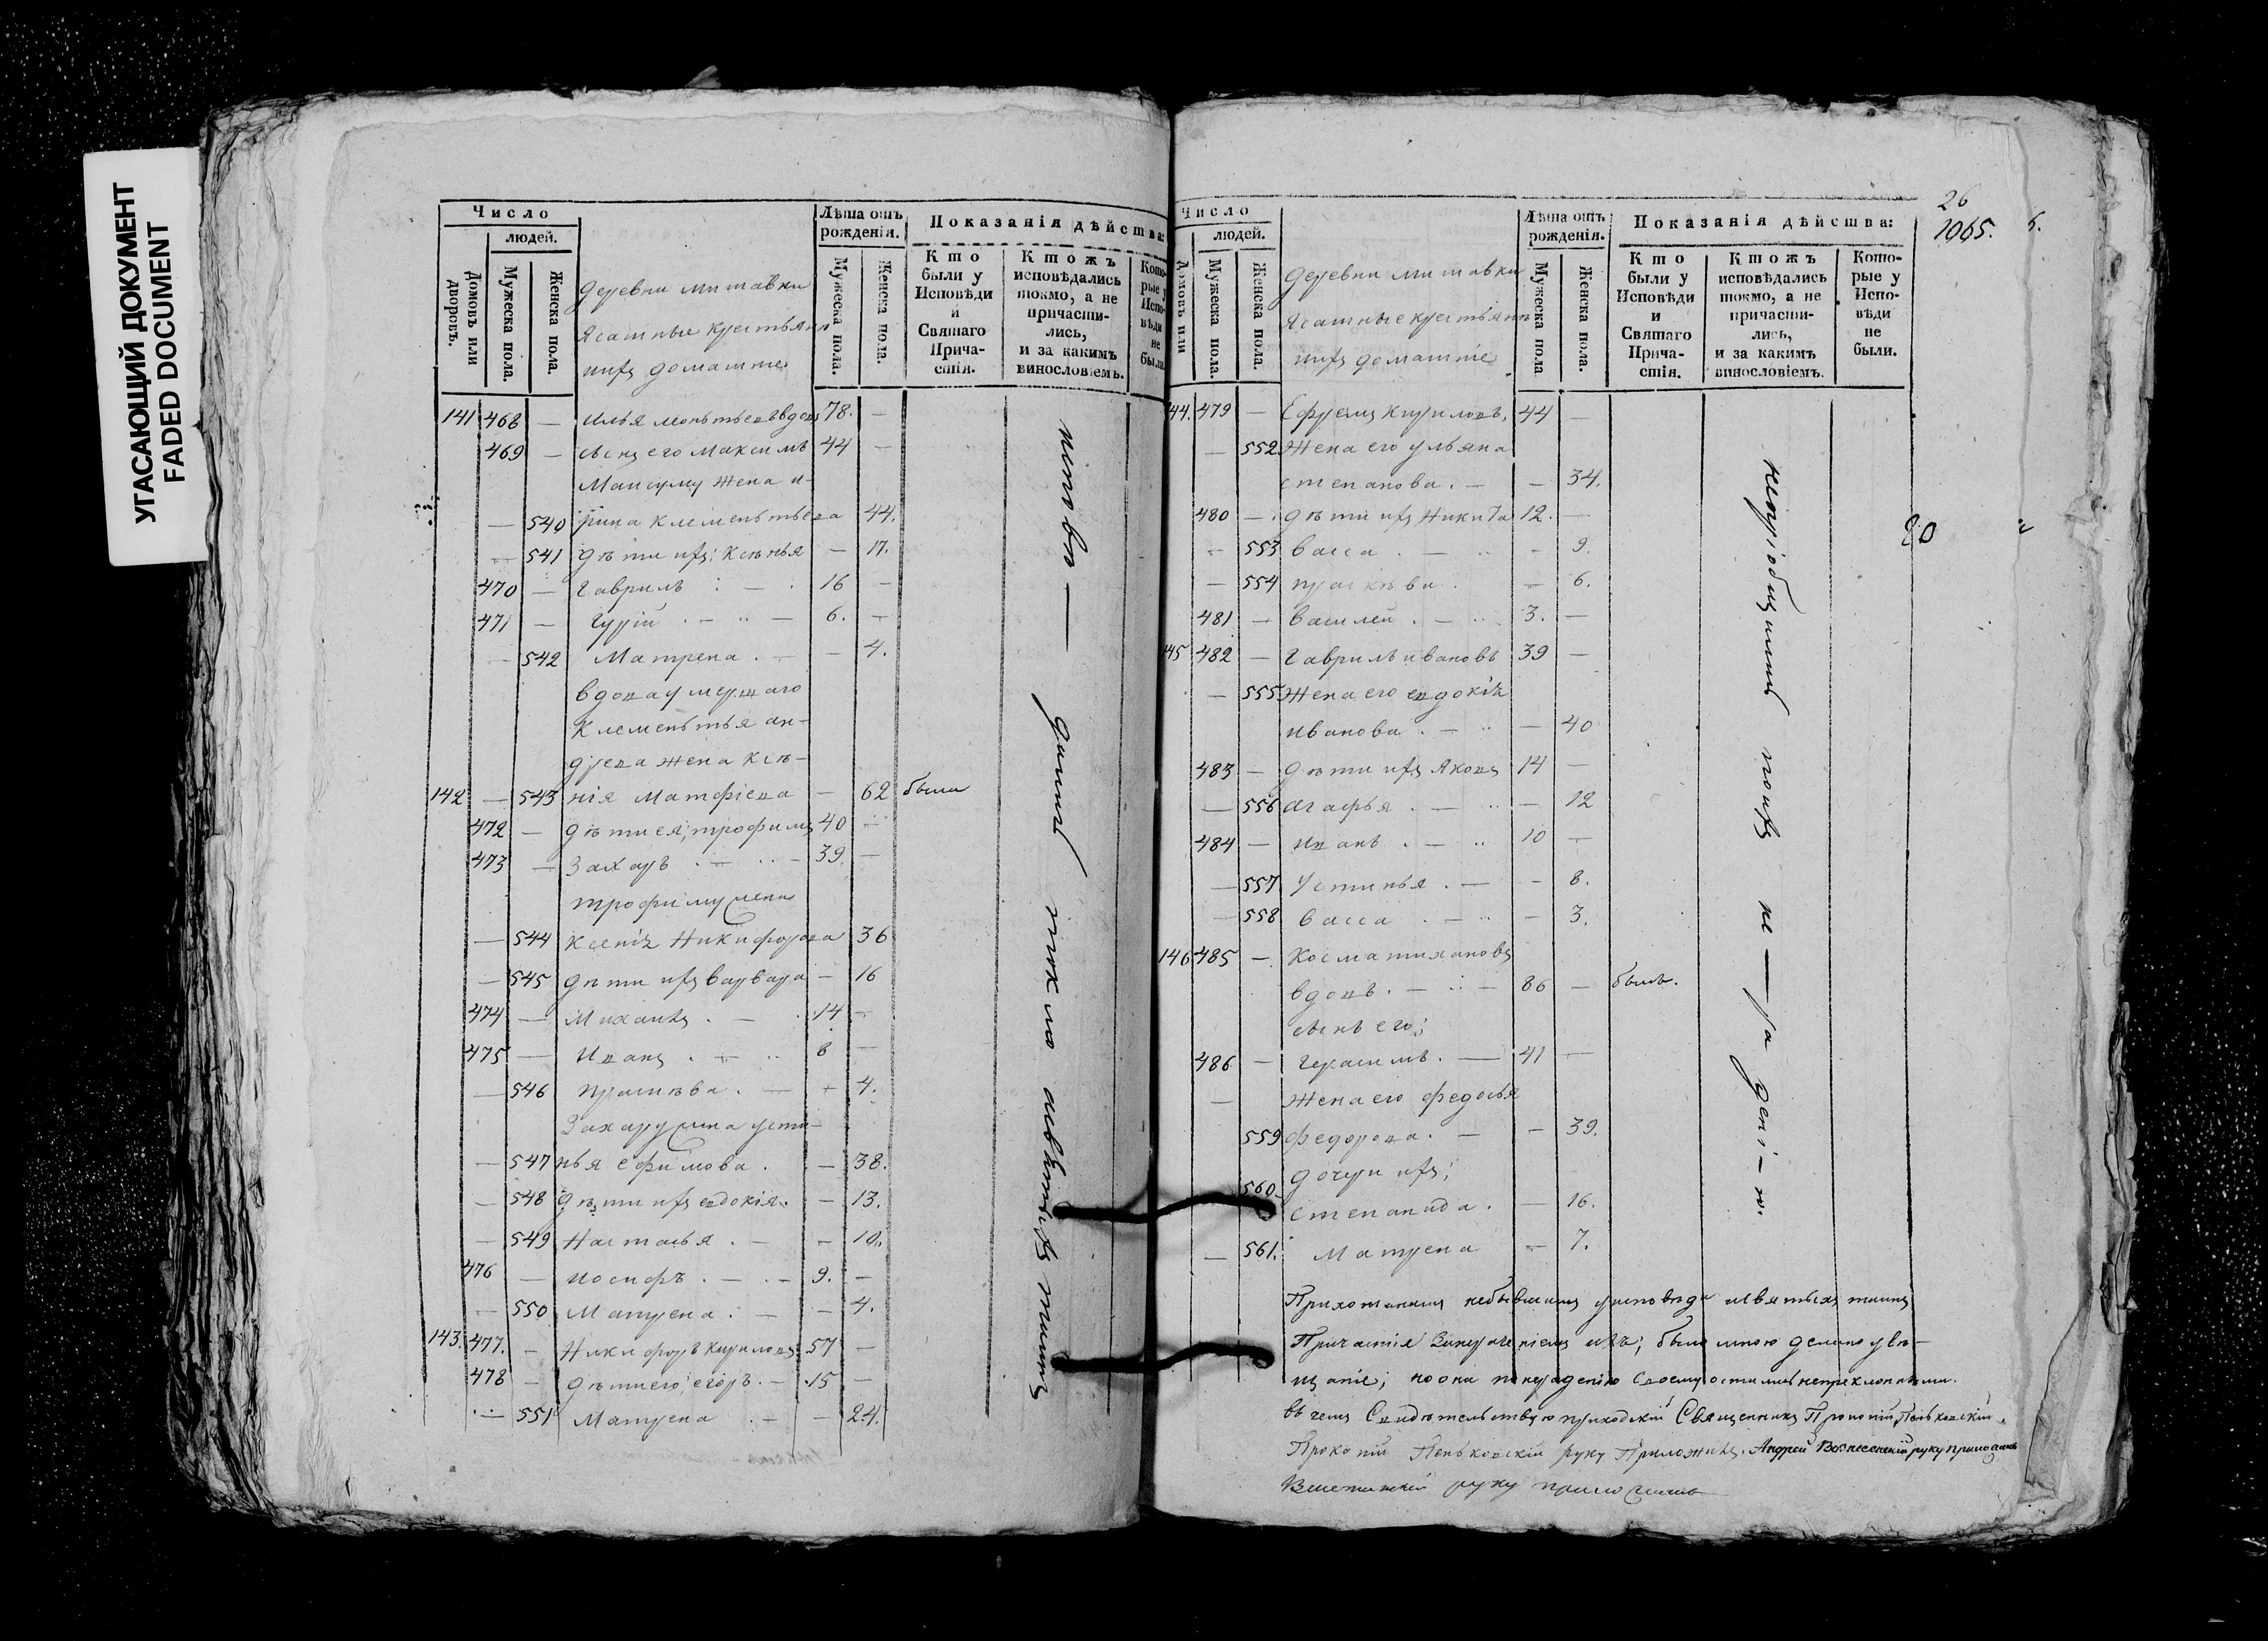 УГАСАЮЩИЙ ДОКУМЕНТ
FADED DOCUMENT
Число
людей.
Домовъ или дворовъ.
Мужеска пола.
Женска пола.
деревни митавки
ясашные крестьяне
ихъ домашние
Лѣта отъ рожденія.
Мужеска пола.
Женска пола.
Показанія дѣйства:
Кто были у Исповѣди и Святаго Причастія.
Ктожъ исповѣдались токмо, а не причастились, и за какимъ винословіемъ.
Которые у Исповѣди не были.
141 468 — Илья 78. —
469 — сынъ его Максимъ 44 —
жена и-
— 540 рина Клементьева 44.
— 541 дѣти ихъ; Ксѣнья — 17.
470 — Гаврилъ 16 —
471 — Гурій 6. —
— 542 Матрена — 4.
вдова умершаго
Клементья ан-
древа жена Ксѣ-
142 — 543 нія Матфіева — 62 была
472 — дѣти ея; трофимъ 40 —
473 — Захаръ 39. —
трофиму жена
— 544 Ксеніа Никифорова 36
— 545 дѣти ихъ варвара — 16
474 — Михаилъ 14 —
475 — Иванъ 8 —
— 546 праскѣва — 4.
Захару жена усти-
— 547 нья ефимова — 38.
— 548 дѣти ихъ евдокія — 13.
— 549 Настасья — 10.
476 — иосифъ 9. —
— 550 Матрена — 4.
143. 477. — Никифоръ Кириловъ 57 —
478 — дѣти его; егоръ 15 —
— 551 Матрена — 24.
26
1065.
Число
людей.
Домовъ или
Мужеска пола.
Женска пола.
деревни митавки
ясашные крестьяне
ихъ домашніе
Лѣта отъ рожденія.
Мужеска пола
Женска пола.
Показанія дѣйства:
Кто были у Исповѣди и Святаго Причастія.
Ктожъ исповѣдались токмо, а не причастились, и за какимъ винословіемъ.
Которые у Исповѣди не были.
44. 479 — Ефремъ Кириловъ 44 —
— 552 Жена его ульяна
степанова — 34.
480 — дѣти ихъ Никита 12. —
— 553 васса — 9.
— 554 праскѣва — 6.
481 — василей 3. —
45 482 — Гаврилъ ивановъ 39 —
— 555 Жена его евдокіа
иванова — 40
483 — дѣти ихъ Яковъ 14 —
— 556 агафья — 12
484 — иванъ 10 —
— 557 Устинья — 8.
— 558 васса — 3.
146 485 — Косма
вдовъ 86 — былъ.
сынъ его;
486 — герасимъ 41 —
— Жена его федосья
559 федорова — 39.
дочери ихъ;
560 степанида — 16.
— 561. Матрена — 7.
80
Прихожанамъ небывшимъ у исповѣди и святыхъ таинъ
Причастія было мною делано увѣ-
щаніе; но они остались непреклонными.
въ чемъ Свидѣтельствую приходскій Священникъ Прокопій Пеньковскій.
Прокопій Пеньковскій руку Приложилъ. Андрей Вознесенскій руку приложилъ
руку приложилъ